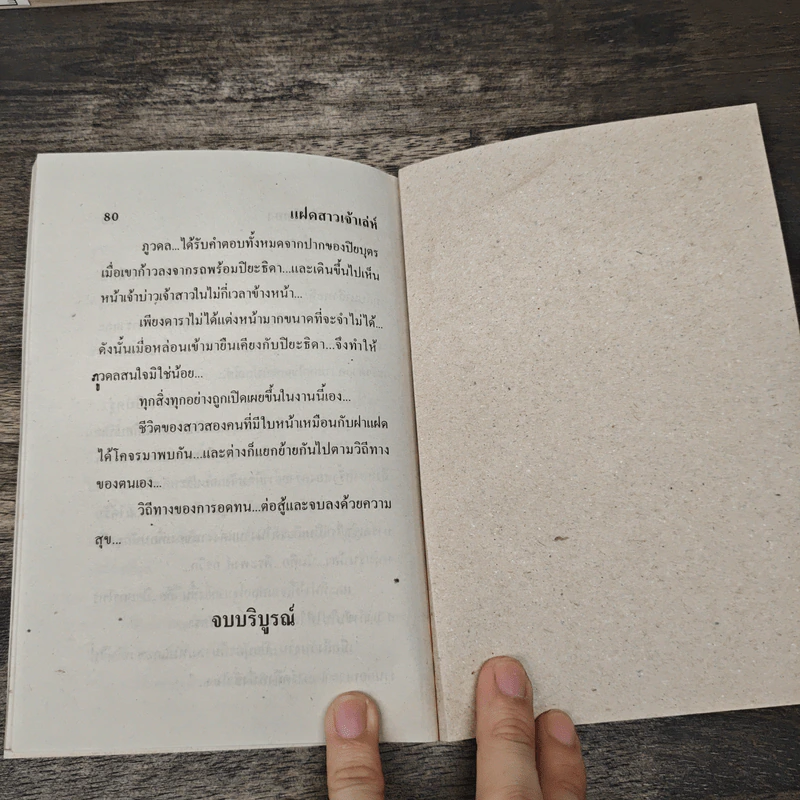 80
แฝดสาวเจ้าเล่ห์
ภูวดล...ได้รับคำตอบทั้งหมดจากปากของปิยบุตร
เมื่อเขาก้าวลงจากรถพร้อมปิยะธิดา...และเดินขึ้นไปเห็น
หน้าเจ้าบ่าวเจ้าสาวในไม่กี่เวลาข้างหน้า...
เพียงดาราไม่ได้แต่งหน้ามากขนาดที่จะจำไม่ได้...
ดังนั้นเมื่อหล่อนเข้ามายืนเคียงกับปิยะธิดา...จึงทำให้
ภูวดลสนใจมิใช่น้อย...
ทุกสิ่งทุกอย่างถูกเปิดเผยขึ้นในงานนี้เอง...
ชีวิตของสาวสองคนที่มีใบหน้าเหมือนกับฝาแฝด
ได้โคจรมาพบกัน...และต่างก็แยกย้ายกันไปตามวิถีทาง
ของตนเอง...
วิถีทางของการอดทน...ต่อสู้และจบลงด้วยความ
สุข...
จบบริบูรณ์